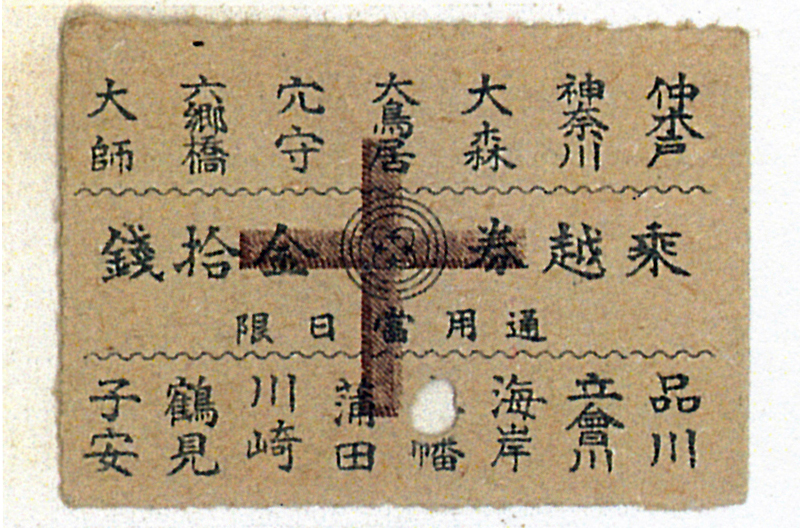 仲木戸 神奈川 大森 大鳥居 穴守 六郷橋 大師
乗越券 金拾錢
通用當日限
品川 立會川 海岸 幡 蒲田 川崎 鶴見 子安